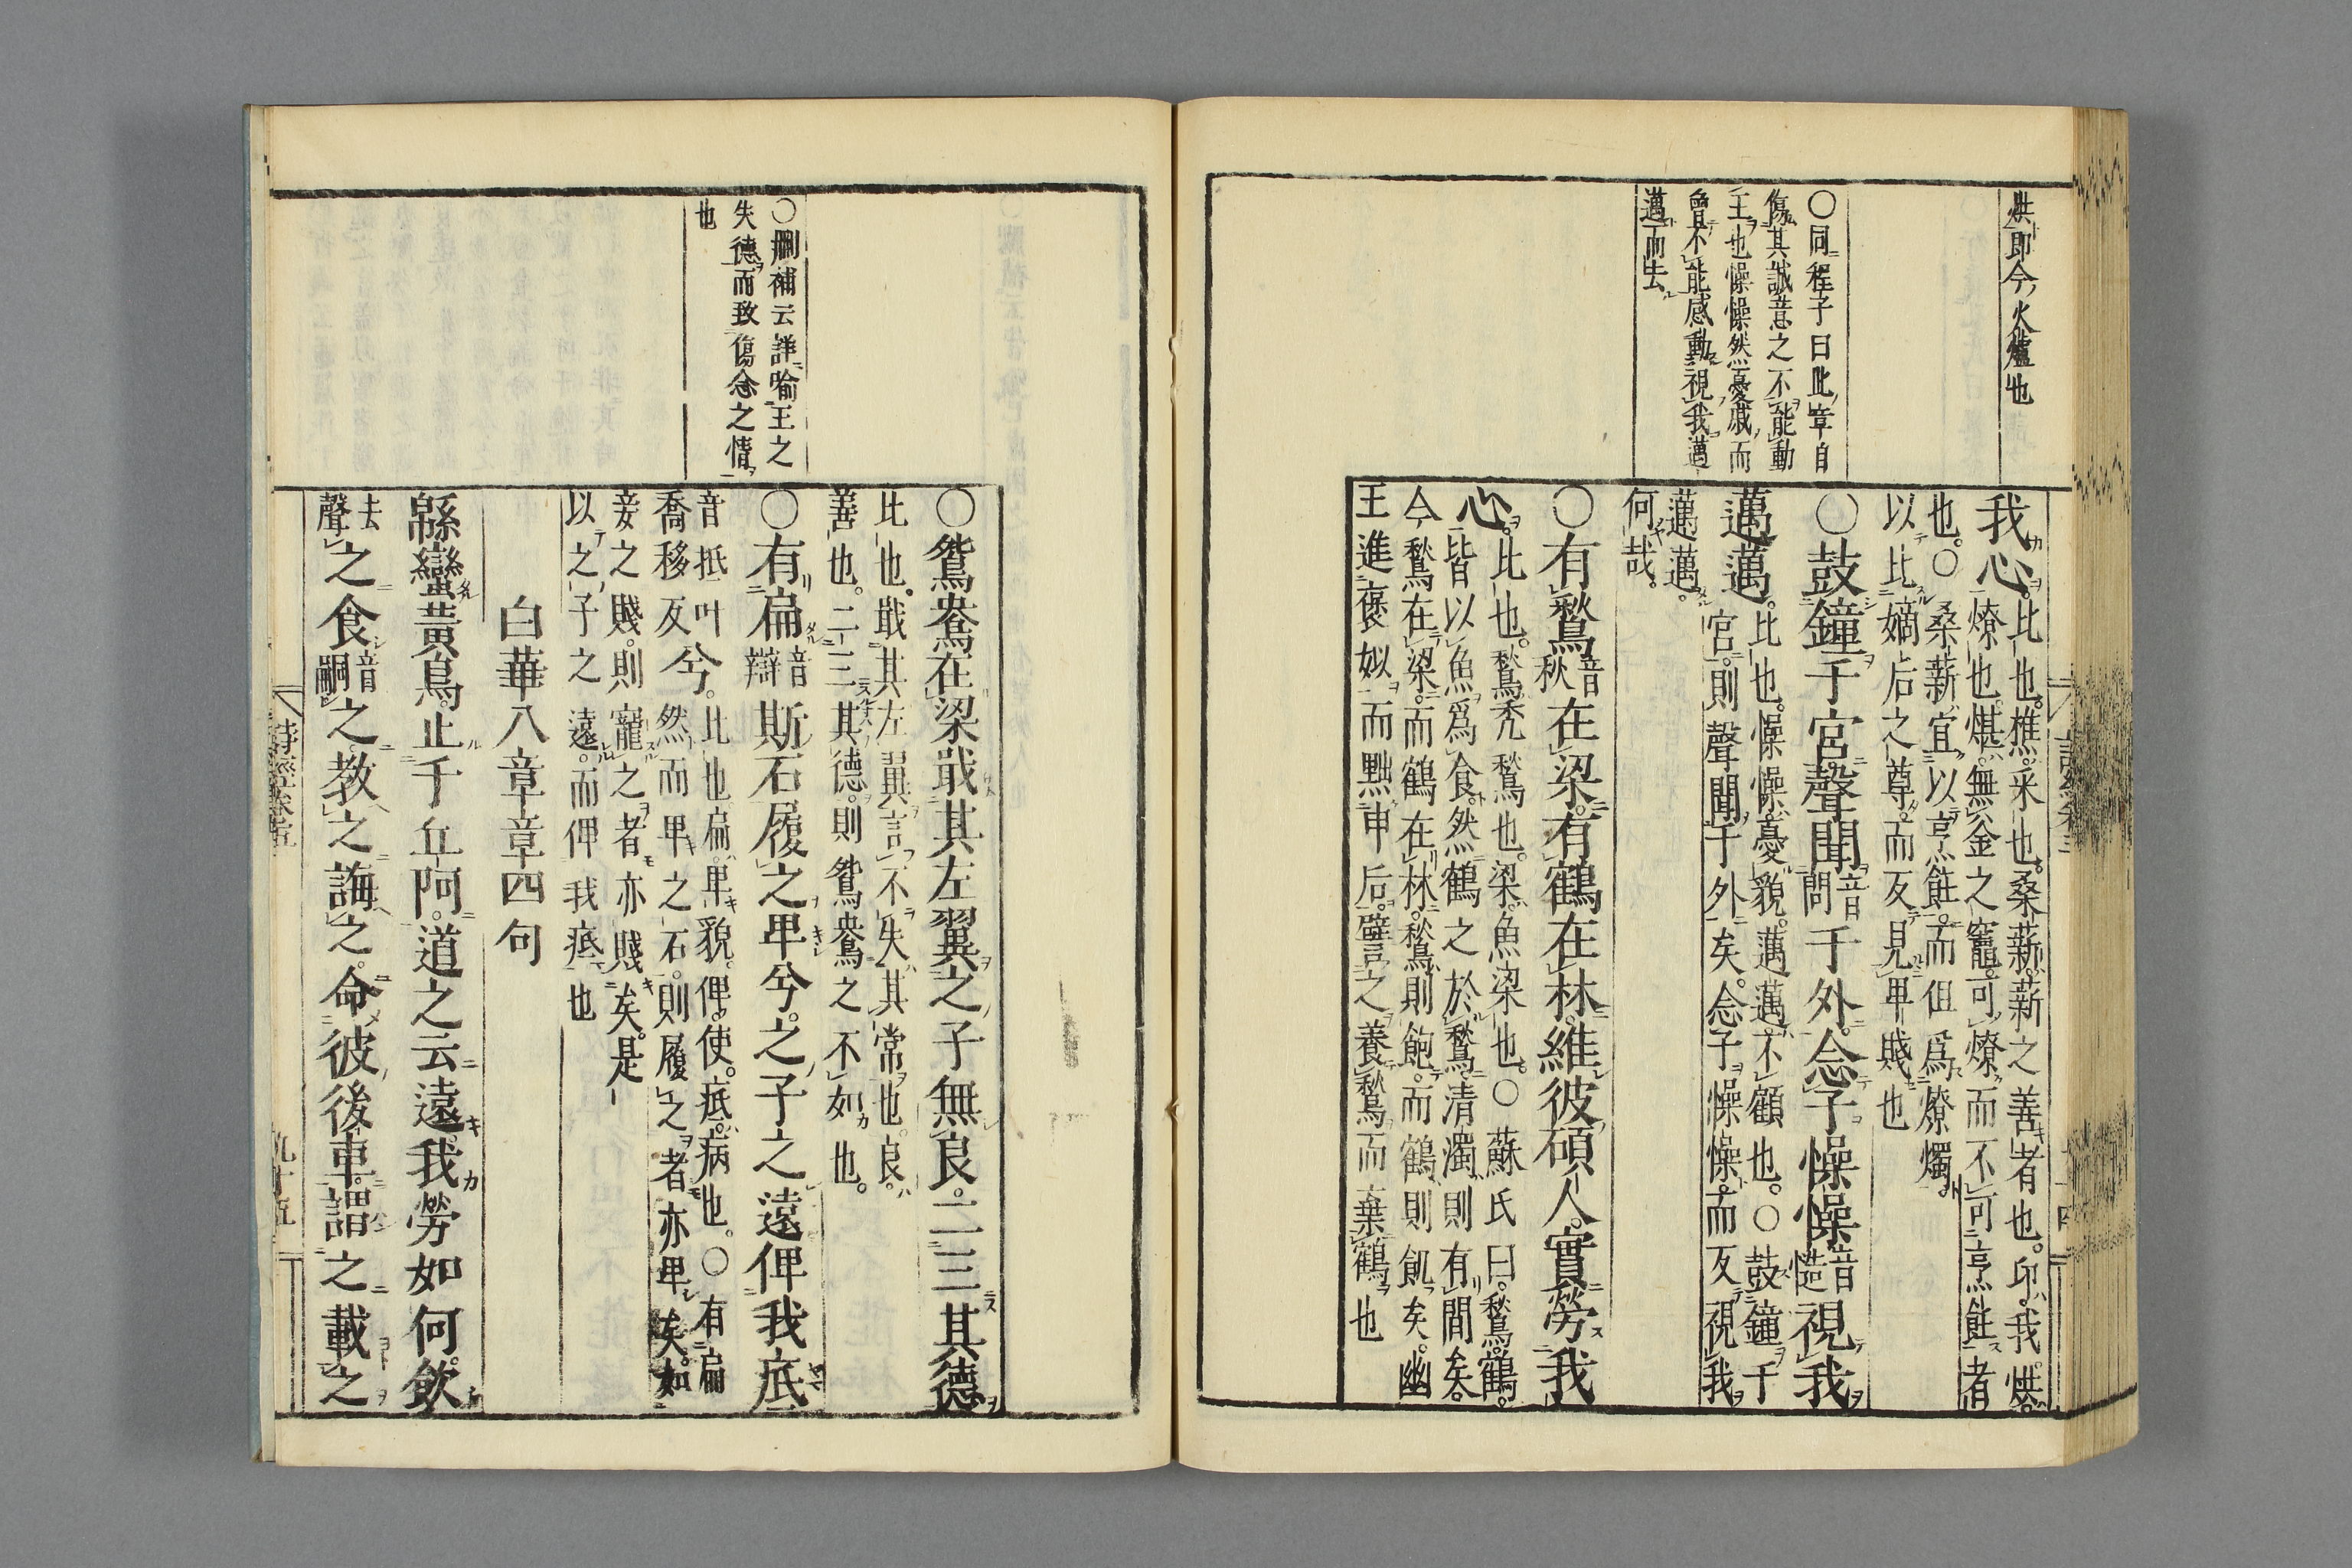 烘即今火爐也
○同程子曰此章自
傷其誠意之不能動
王也懆懆然憂戚而
曾不能感動視我邁
邁而去
我心比也樵采也桑薪薪之善者也卬我烘
燎也煁無釜之竈可燎而不可烹飪者
也○桑薪宜以烹飪而但爲燎燭
以比嫡后之尊而反見卑賤也
○鼓鐘于宮聲聞音問于外念子懆懆音慥視我
邁邁比也懆懆憂貌邁邁不顧也○鼓鐘于
宮則聲聞于外矣念子懆懆而反視我
邁邁
何哉
○有鶖音秋在梁有鶴在林維彼碩人實勞我
心比也鶖禿鶖也梁魚梁也○蘇氏曰鶖鶴
皆以魚爲食然鶴之於鶖清濁則有間矣
今鶖在梁而鶴在林鶖則飽而鶴則飢矣幽
王進褒姒而黜申后譬之養鶖而棄鶴也
○刪補云詳喻王之
失德而致傷念之情
也
○鴛鴦在梁戢其左翼之子無良二三其德
比也戢其左翼言不失其常也良
善也二三其德則鴛鴦之不如也
○有扁音辯斯石履之卑兮之子之遠俾我疷
音抵叶
喬移反兮比也扁卑貌俾使疷病也○有扁
然而卑之石則履之者亦卑矣如
妾之賤則寵之者亦賤矣是
以之子之遠而俾我疷也
白華八章章四句
緜蠻黃鳥止于丘阿道之云遠我勞如何飲
去聲之食音嗣之教之誨之命彼後車謂之載之
詩經卷五
九十五